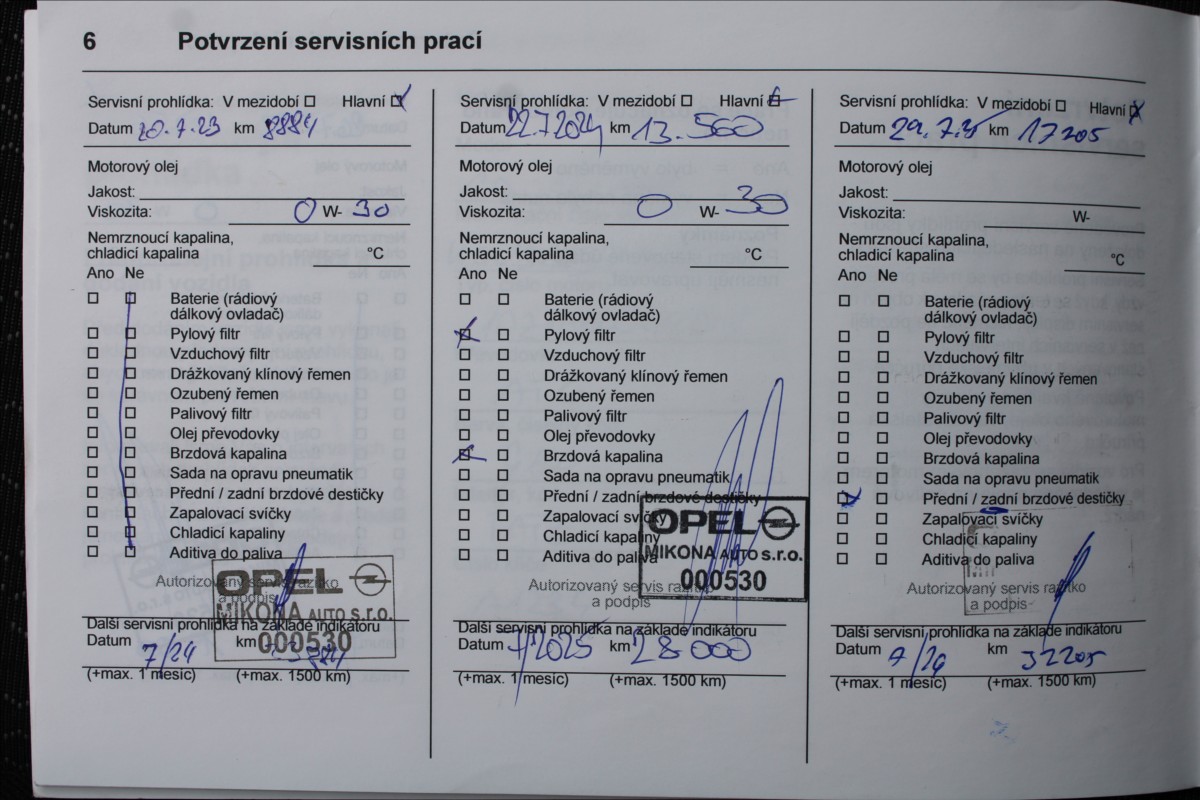 6 Potvrzení servisních prací
Servisní prohlídka: V mezidobí Hlavní
Datum 20.7.23 km 8884
Motorový olej
Jakost:
Viskozita: 0 W- 30
Nemrznoucí kapalina,
chladicí kapalina °C
Ano Ne
Baterie (rádiový
dálkový ovladač)
Pylový filtr
Vzduchový filtr
Drážkovaný klínový řemen
Ozubený řemen
Palivový filtr
Olej převodovky
Brzdová kapalina
Sada na opravu pneumatik
Přední / zadní brzdové destičky
Zapalovací svíčky
Chladicí kapaliny
Aditiva do paliva
Autorizovaný servis razítko
a podpis
OPEL
MIKONA AUTO s.r.o.
000530
Další servisní prohlídka na základě indikátoru
Datum 7/24 km
(+max. 1 měsíc) (+max. 1500 km)
Servisní prohlídka: V mezidobí Hlavní
Datum 22.7.2024 km 13.560
Motorový olej
Jakost:
Viskozita: 0 W- 30
Nemrznoucí kapalina,
chladicí kapalina °C
Ano Ne
Baterie (rádiový
dálkový ovladač)
Pylový filtr
Vzduchový filtr
Drážkovaný klínový řemen
Ozubený řemen
Palivový filtr
Olej převodovky
Brzdová kapalina
Sada na opravu pneumatik
Přední / zadní brzdové destičky
Zapalovací svíčky
Chladicí kapaliny
Aditiva do paliva
OPEL
MIKONA AUTO s.r.o.
000530
Autorizovaný servis razítko
a podpis
Další servisní prohlídka na základě indikátoru
Datum 7/2025 km 28000
(+max. 1 měsíc) (+max. 1500 km)
Servisní prohlídka: V mezidobí Hlavní
Datum km 17205
Motorový olej
Jakost:
Viskozita: W-
Nemrznoucí kapalina,
chladicí kapalina °C
Ano Ne
Baterie (rádiový
dálkový ovladač)
Pylový filtr
Vzduchový filtr
Drážkovaný klínový řemen
Ozubený řemen
Palivový filtr
Olej převodovky
Brzdová kapalina
Sada na opravu pneumatik
Přední / zadní brzdové destičky
Zapalovací svíčky
Chladicí kapaliny
Aditiva do paliva
Autorizovaný servis razítko
a podpis
Další servisní prohlídka na základě indikátoru
Datum 7/26 km 32205
(+max. 1 měsíc) (+max. 1500 km)